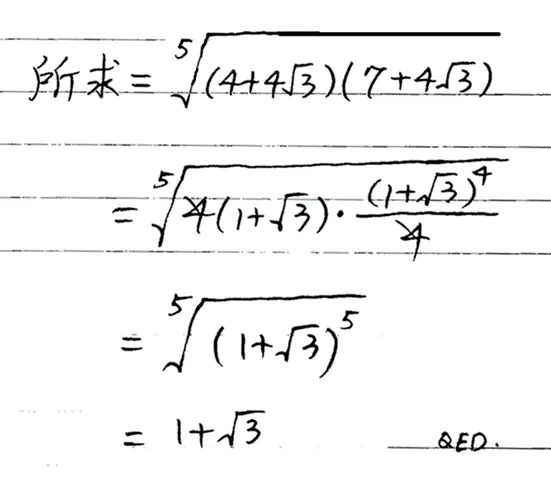 所求 = ⁵√(4+4√3)(7+4√3)
= ⁵√4(1+√3)·(1+√3)⁴/4
= ⁵√(1+√3)⁵
= 1+√3 QED.